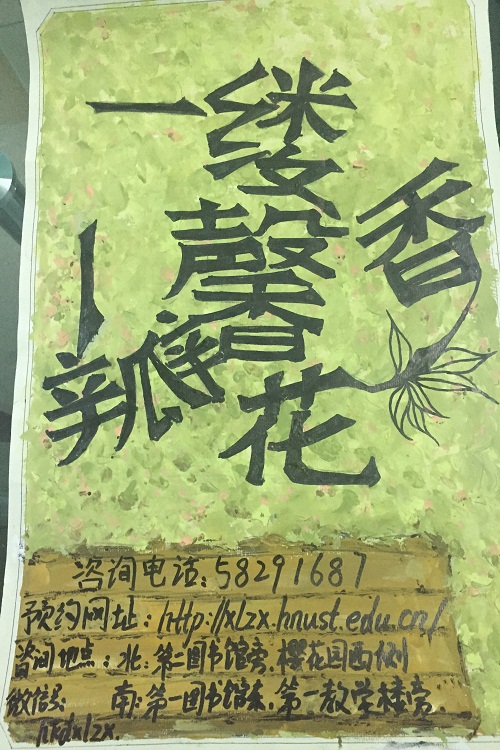 一缕
馨香
一瓣花
咨询电话：58291687
预约网址：http://xlzx.hnust.edu.cn/
咨询地点：北：第二图书馆旁，樱花园西侧
微信号：南：第一图书馆东，第一教学楼旁.
hkdxlzx.